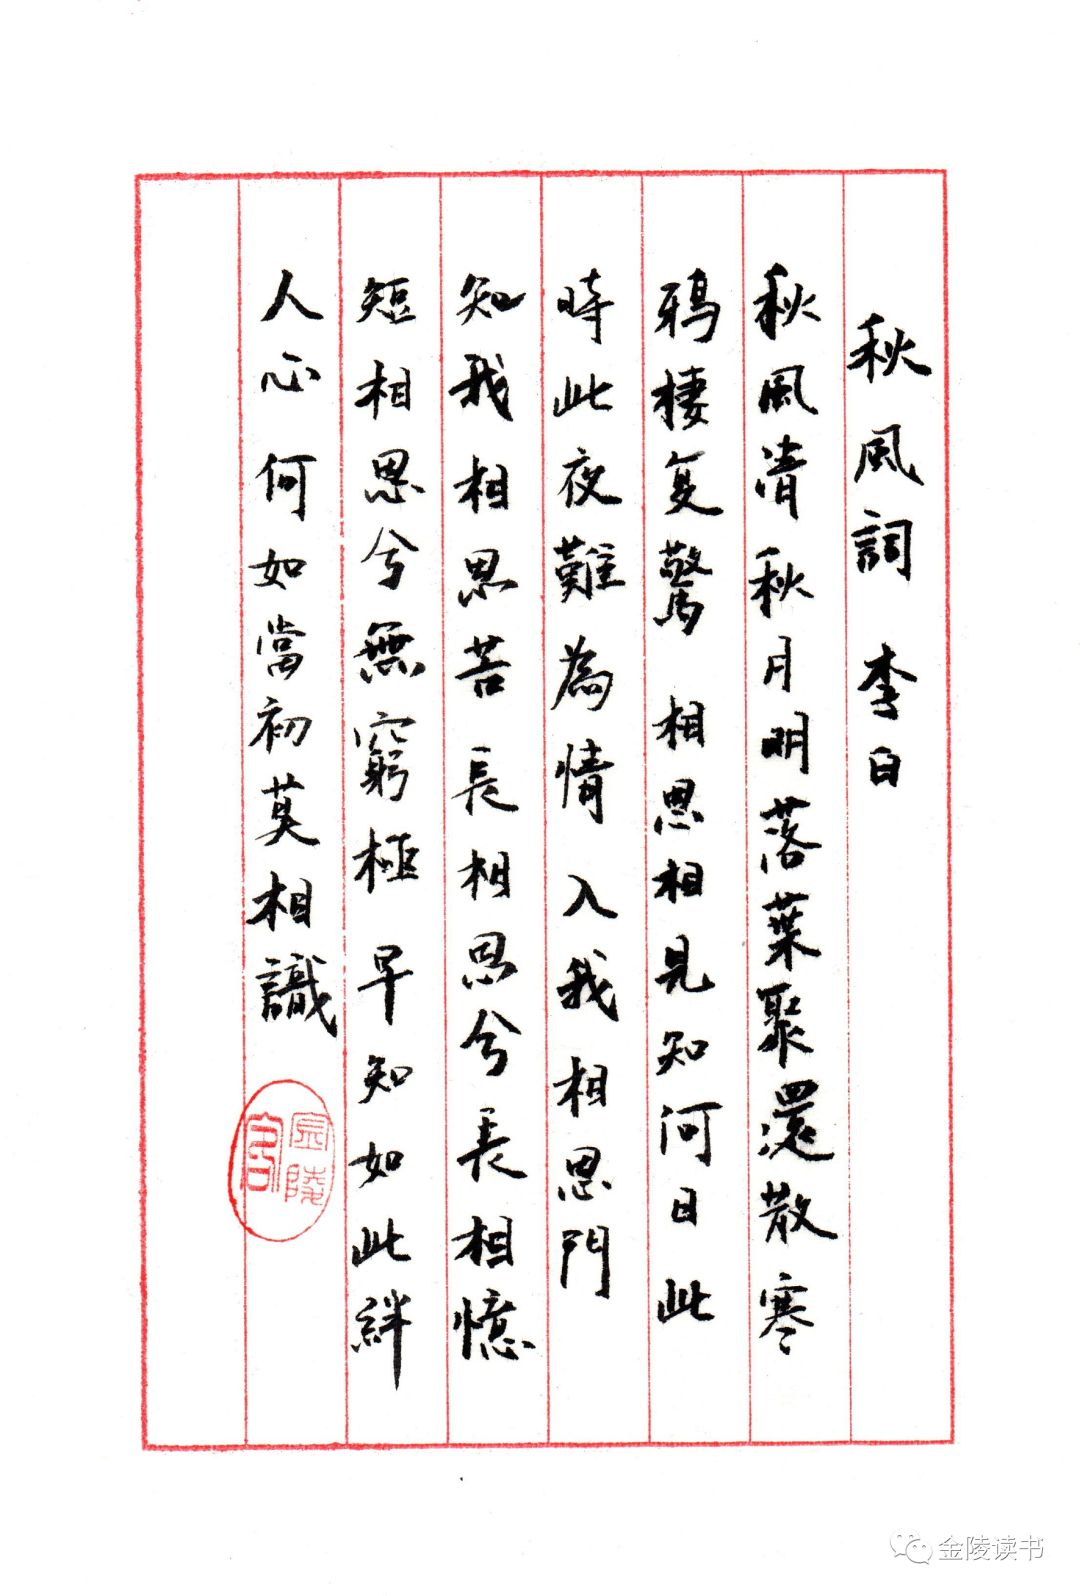 秋風詞 李白
秋風清秋月明落葉聚還散寒
鴉棲复驚 相思相見知何日此
時此夜難為情 入我相思門
知我相思苦 長相思兮長相憶
短相思兮無窮極 早知如此絆
人心 何如當初莫相識
金陵客
金陵读书